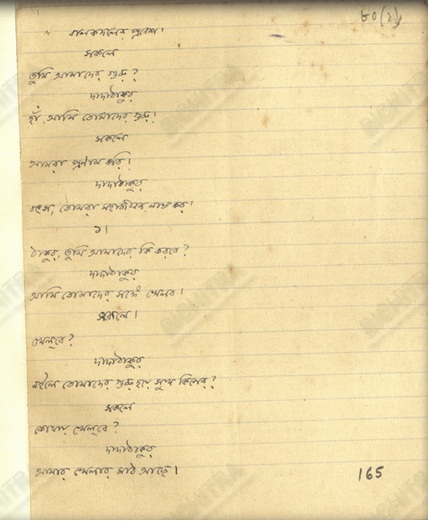 ৮০(১)
বালকদলের প্রবেশ।
সকলে
তুমি আমাদের গুরু?
দাদাঠাকুর
হাঁ, আমি তোমাদের গুরু।
সকলে
আমরা প্রণাম করি।
দাদাঠাকুর
বৎস, তোমরা মহাজীবন লাভ কর।
১।
ঠাকুর, তুমি আমাদের কি করবে?
দাদাঠাকুর
আমি তোমাদের সঙ্গে খেলব।
সকলে।
খেলবে?
দাদাঠাকুর
নইলে তোমাদের গুরু হয়ে সুখ কিসের?
সকলে
কোথায় খেলবে?
দাদাঠাকুর
আমার খেলার মাঠ আছে।
165